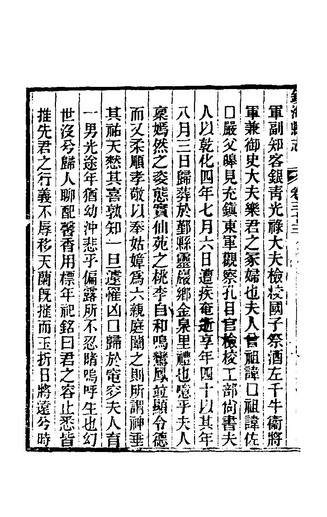 軍副知客銀青光祿大夫檢校國子祭酒左千牛衛將
軍兼御史大夫樂君之冢婦也夫人曾祖諱□祖諱佐
□嚴父皥見充鎮東軍觀察孔目官檢校工部尚書夫
人以乾化四年七月六日遭疾奄逝享年四十以其年
八月三日歸葬於鄞縣靈巖鄉金泉里禮也噫乎夫人
稟嫣然之姿態實仙苑之桃李自和鳴鸞鳳並顯令德
而又柔順孝敬以奉姑嫜爲六親庭闈之則所謂神垂
其祐天愁其喜孰知一旦遽罹凶□歸於窀穸夫人育
一男光途年猶幼沖悲乎偏露所不忍睹嗚呼生也幻
世沒兮歸人聊配馨香用標年祀銘曰君之容止悉皆
推先君之行義不辱移天蘭旣摧而玉折日將遠兮時